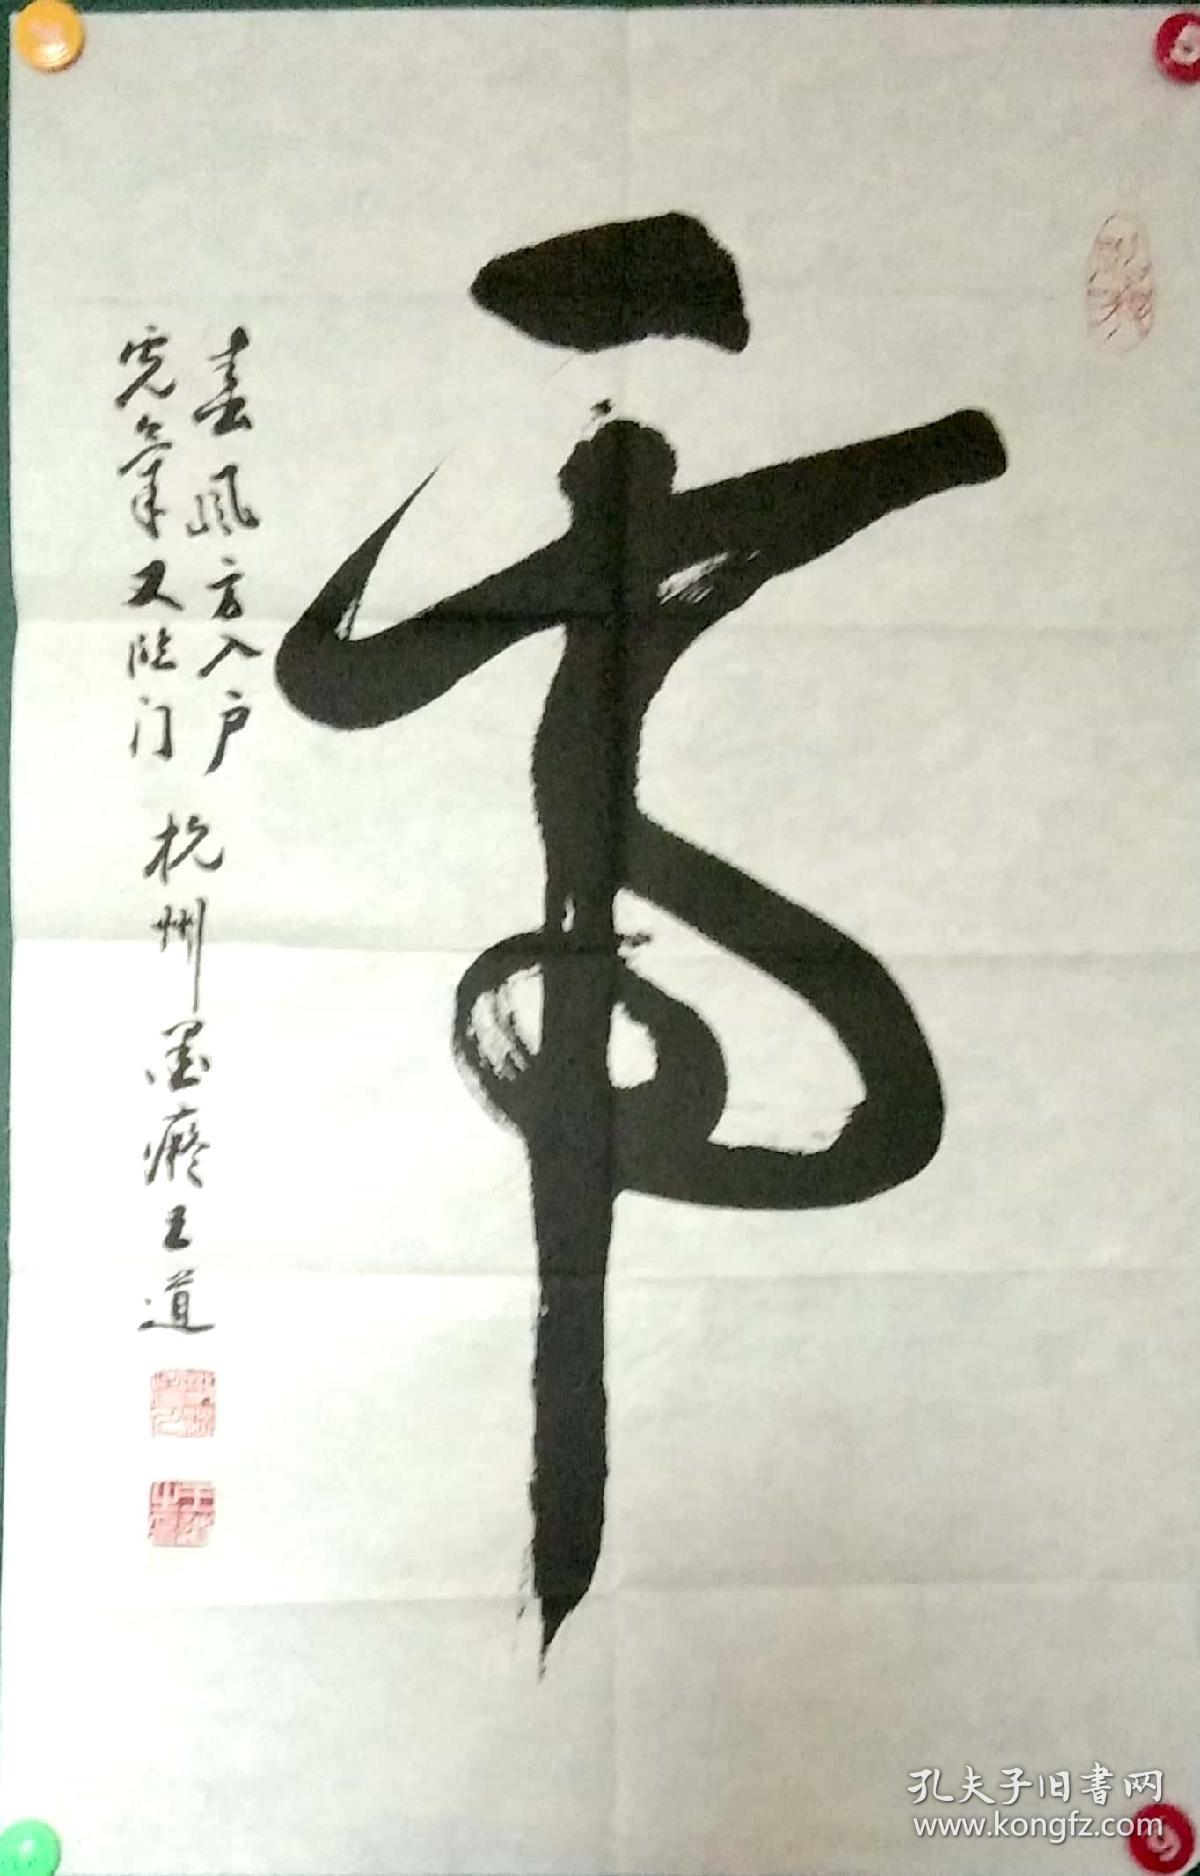 虎
春風方入户
虎氣又临门
杭州墨癡王道
孔夫子旧書网
www.kongfz.com